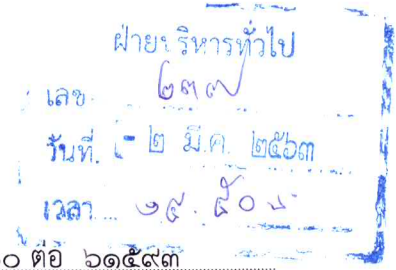 ฝ่ายบริหารทั่วไป
เลข ๒๓๗
วันที่ - ๒ มี.ค. ๒๕๖๓
เวลา
๐ ต่อ ๖๑๕๙๓